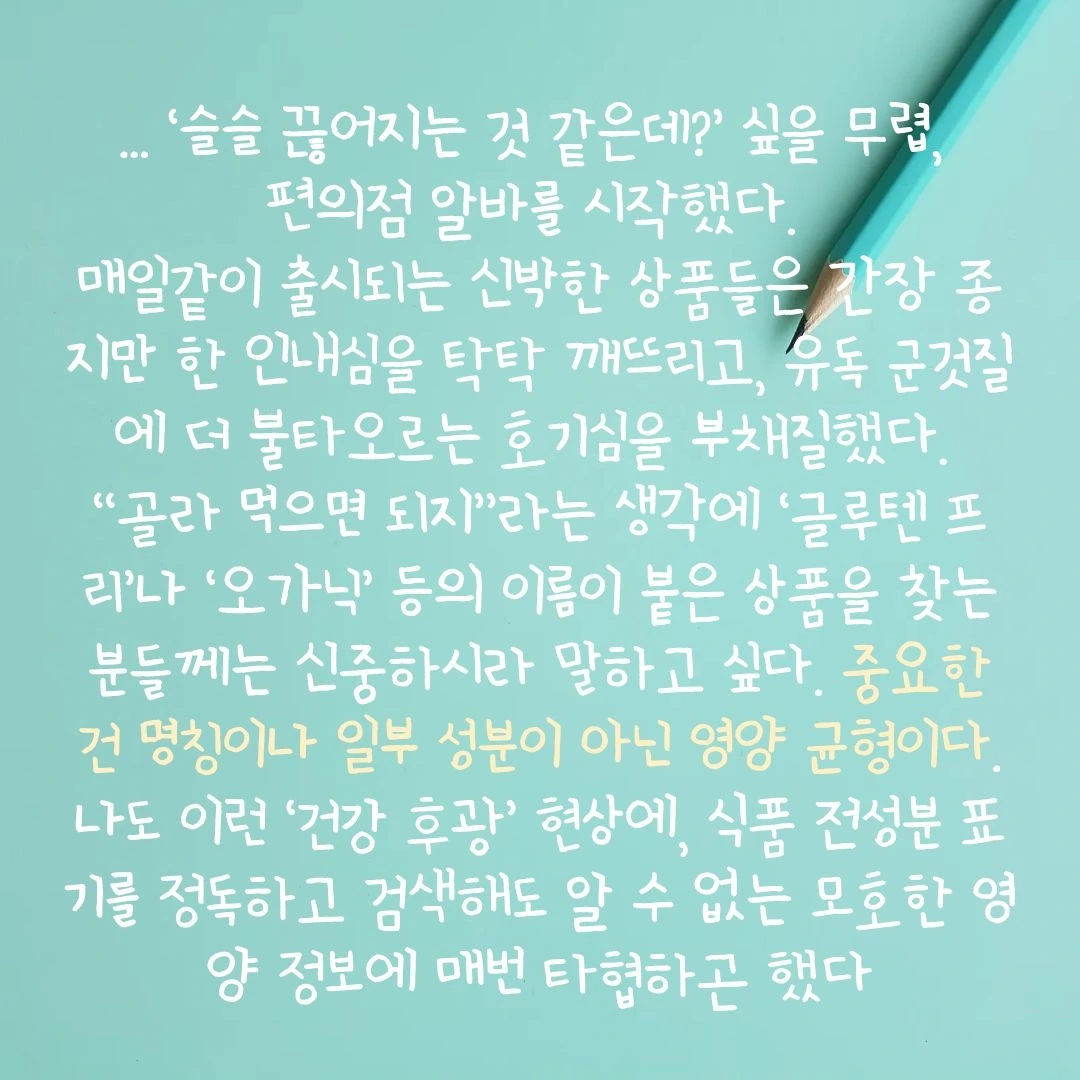 ... ‘슬슬 끊어지는 것 같은데?’ 싶을 무렵,
편의점 알바를 시작했다.
매일같이 출시되는 신박한 상품들은 간장 종
지만 한 인내심을 탁탁 깨뜨리고, 유독 군것질
에 더 불타오르는 호기심을 부채질했다.
“골라 먹으면 되지”라는 생각에 ‘글루텐 프
리’나 ‘오가닉’ 등의 이름이 붙은 상품을 찾는
분들께는 신중하시라 말하고 싶다. 중요한
건 명칭이나 일부 성분이 아닌 영양 균형이다.
나도 이런 ‘건강 후광’ 현상에, 식품 전성분 표
기를 정독하고 검색해도 알 수 없는 모호한 영
양 정보에 매번 타협하곤 했다